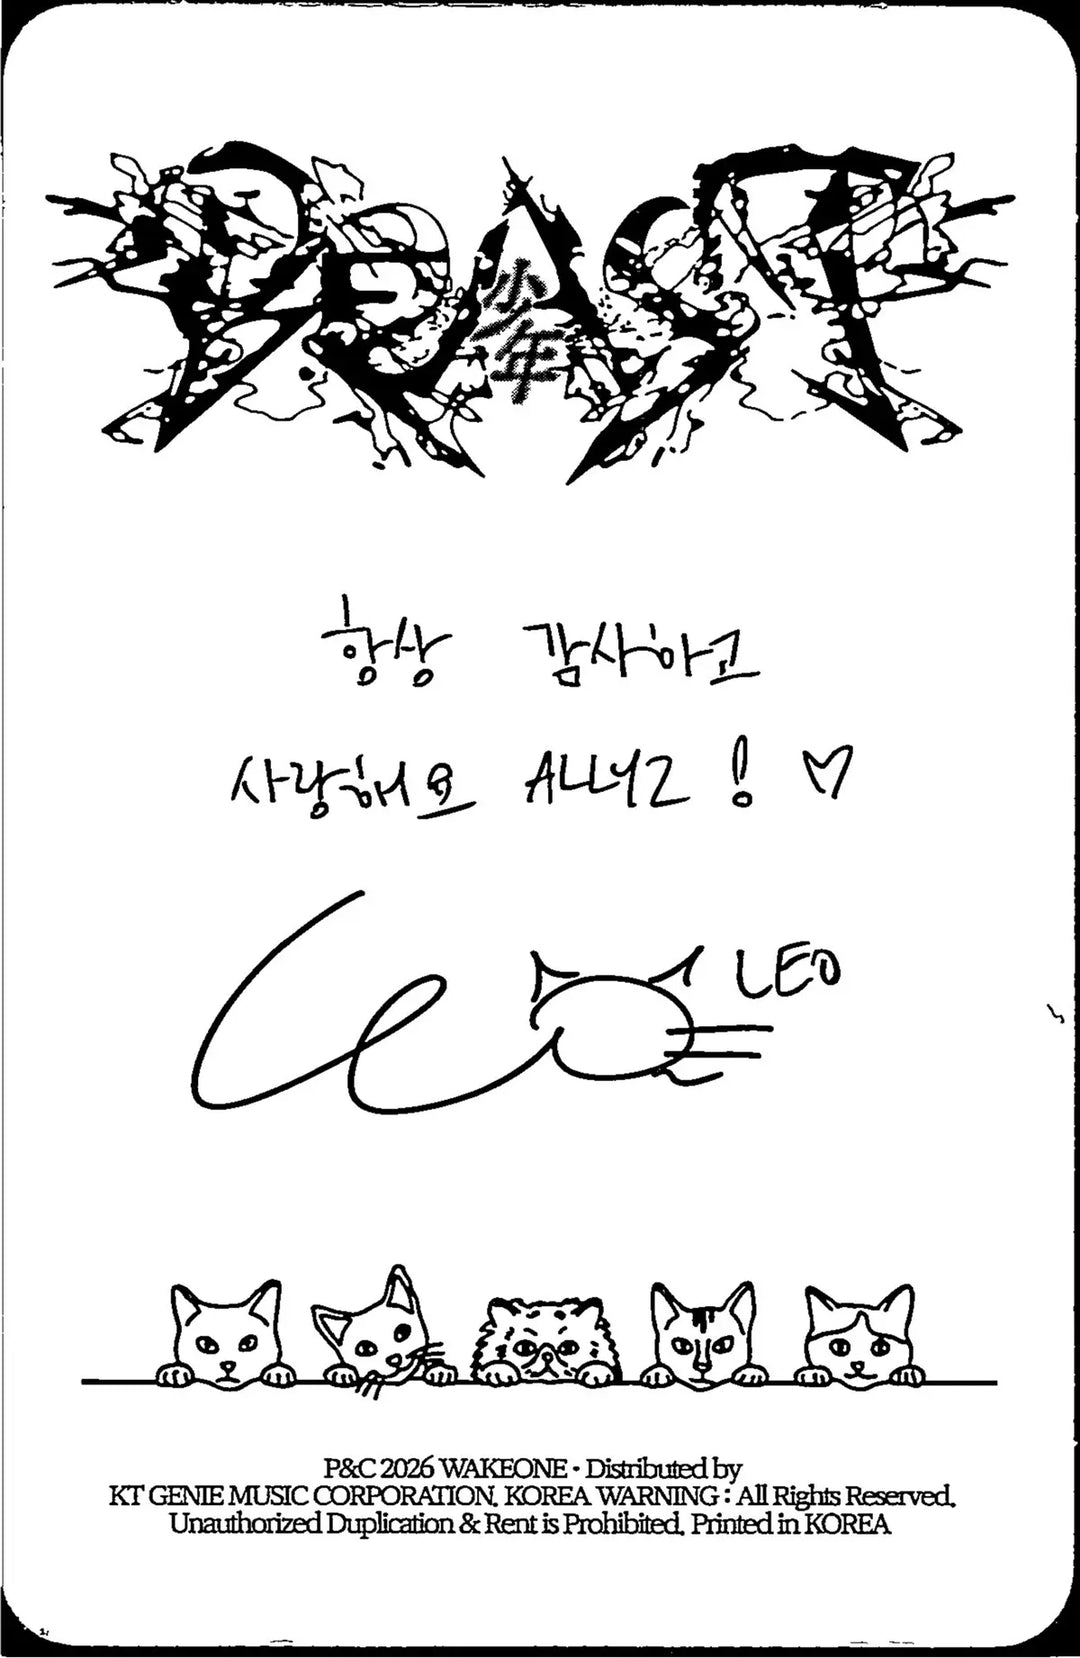 BEAST
少年
항상 감사하고
사랑해요 ALLYZ! ♡
LEO
P&C 2026 WAKEONE · Distributed by
KT GENIE MUSIC CORPORATION. KOREA WARNING : All Rights Reserved.
Unauthorized Duplication & Rent is Prohibited. Printed in KOREA